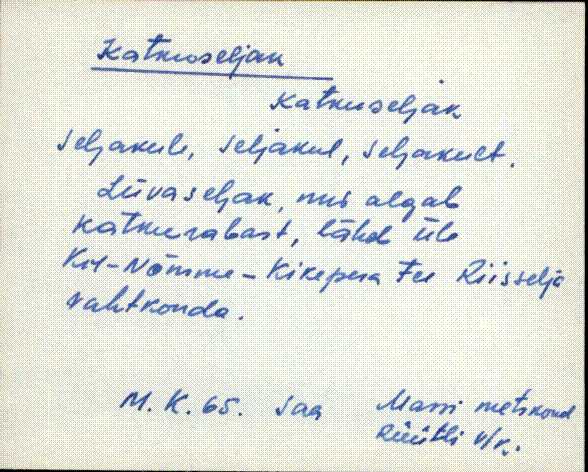 Katkuseljak
Katkuseljak,
seljakule, seljakul, seljakult.
Liivaseljak, mis algab
Katkurabast, lähd üle
Kil-Nõmme-Kikepera tee Riisselja
vahtkonda.
M. K. 65. Saa Massi metskond
Rüütli v/k.